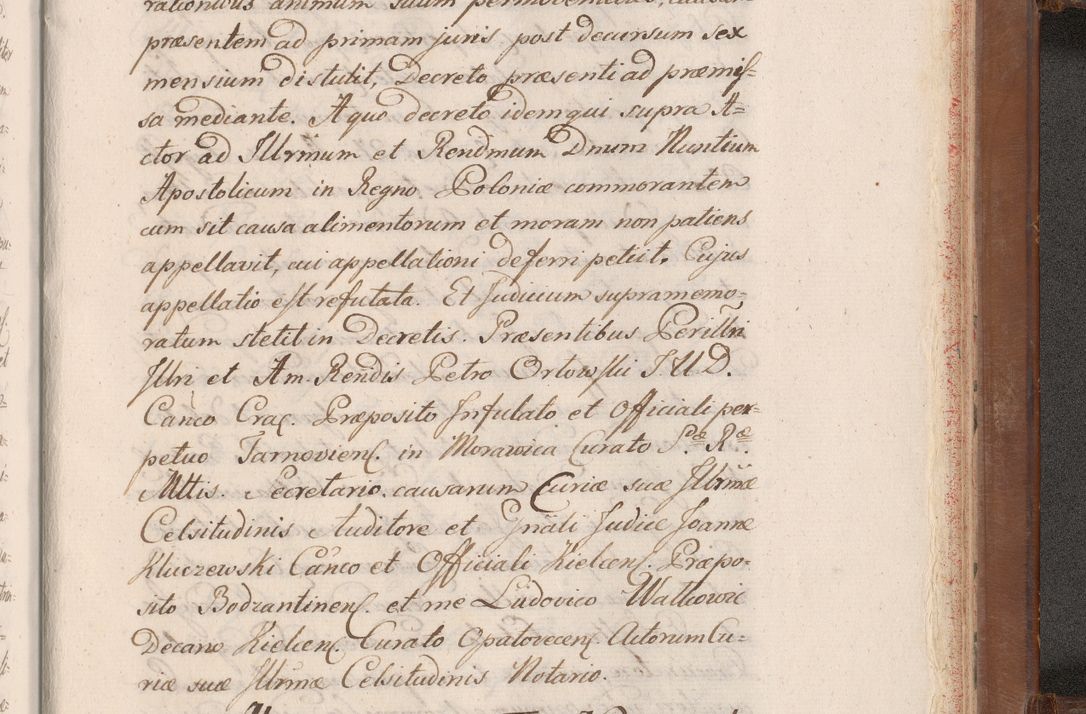 rationibus animum suum permoventibus, causam
præsentem ad primam juris post decursum sex
mensium distulit, Decreto præsenti ad præmis-
sa mediante. A quo decreto idem qui supra A=
ctor ad Illrmum et Rendmum Dnum Nuntium
Apostolicum in Regno Poloniæ commorantem
cum sit causa alimentorum et moram non patiens
appellavit, cui appellationi deferri petiit. Cujus
appellatio est refutata. Et Judicium supramemo-
ratum stetit in Decretis. Præsentibus Perillri
Illri et Am. Rendis Petro Orłowski J.U.D.
Canco Crac. Præposito Infulato et Officiali per-
petuo Tarnoviens. in Morawica Curato S.æ R.æ
Mttis. Secretario. causarum Curiæ suæ Illrmæ
Celsitudinis Auditore et Gnali Judice Joanne
Kluczewski Canco et Officiali Kielcens. Præpo-
sito Bodzantinens. et me Ludovico Walkowic
Decano Kielcens. Curato Opatovecens. Actorum Cu-
riæ suæ Illrmæ Celsitudinis Notario.